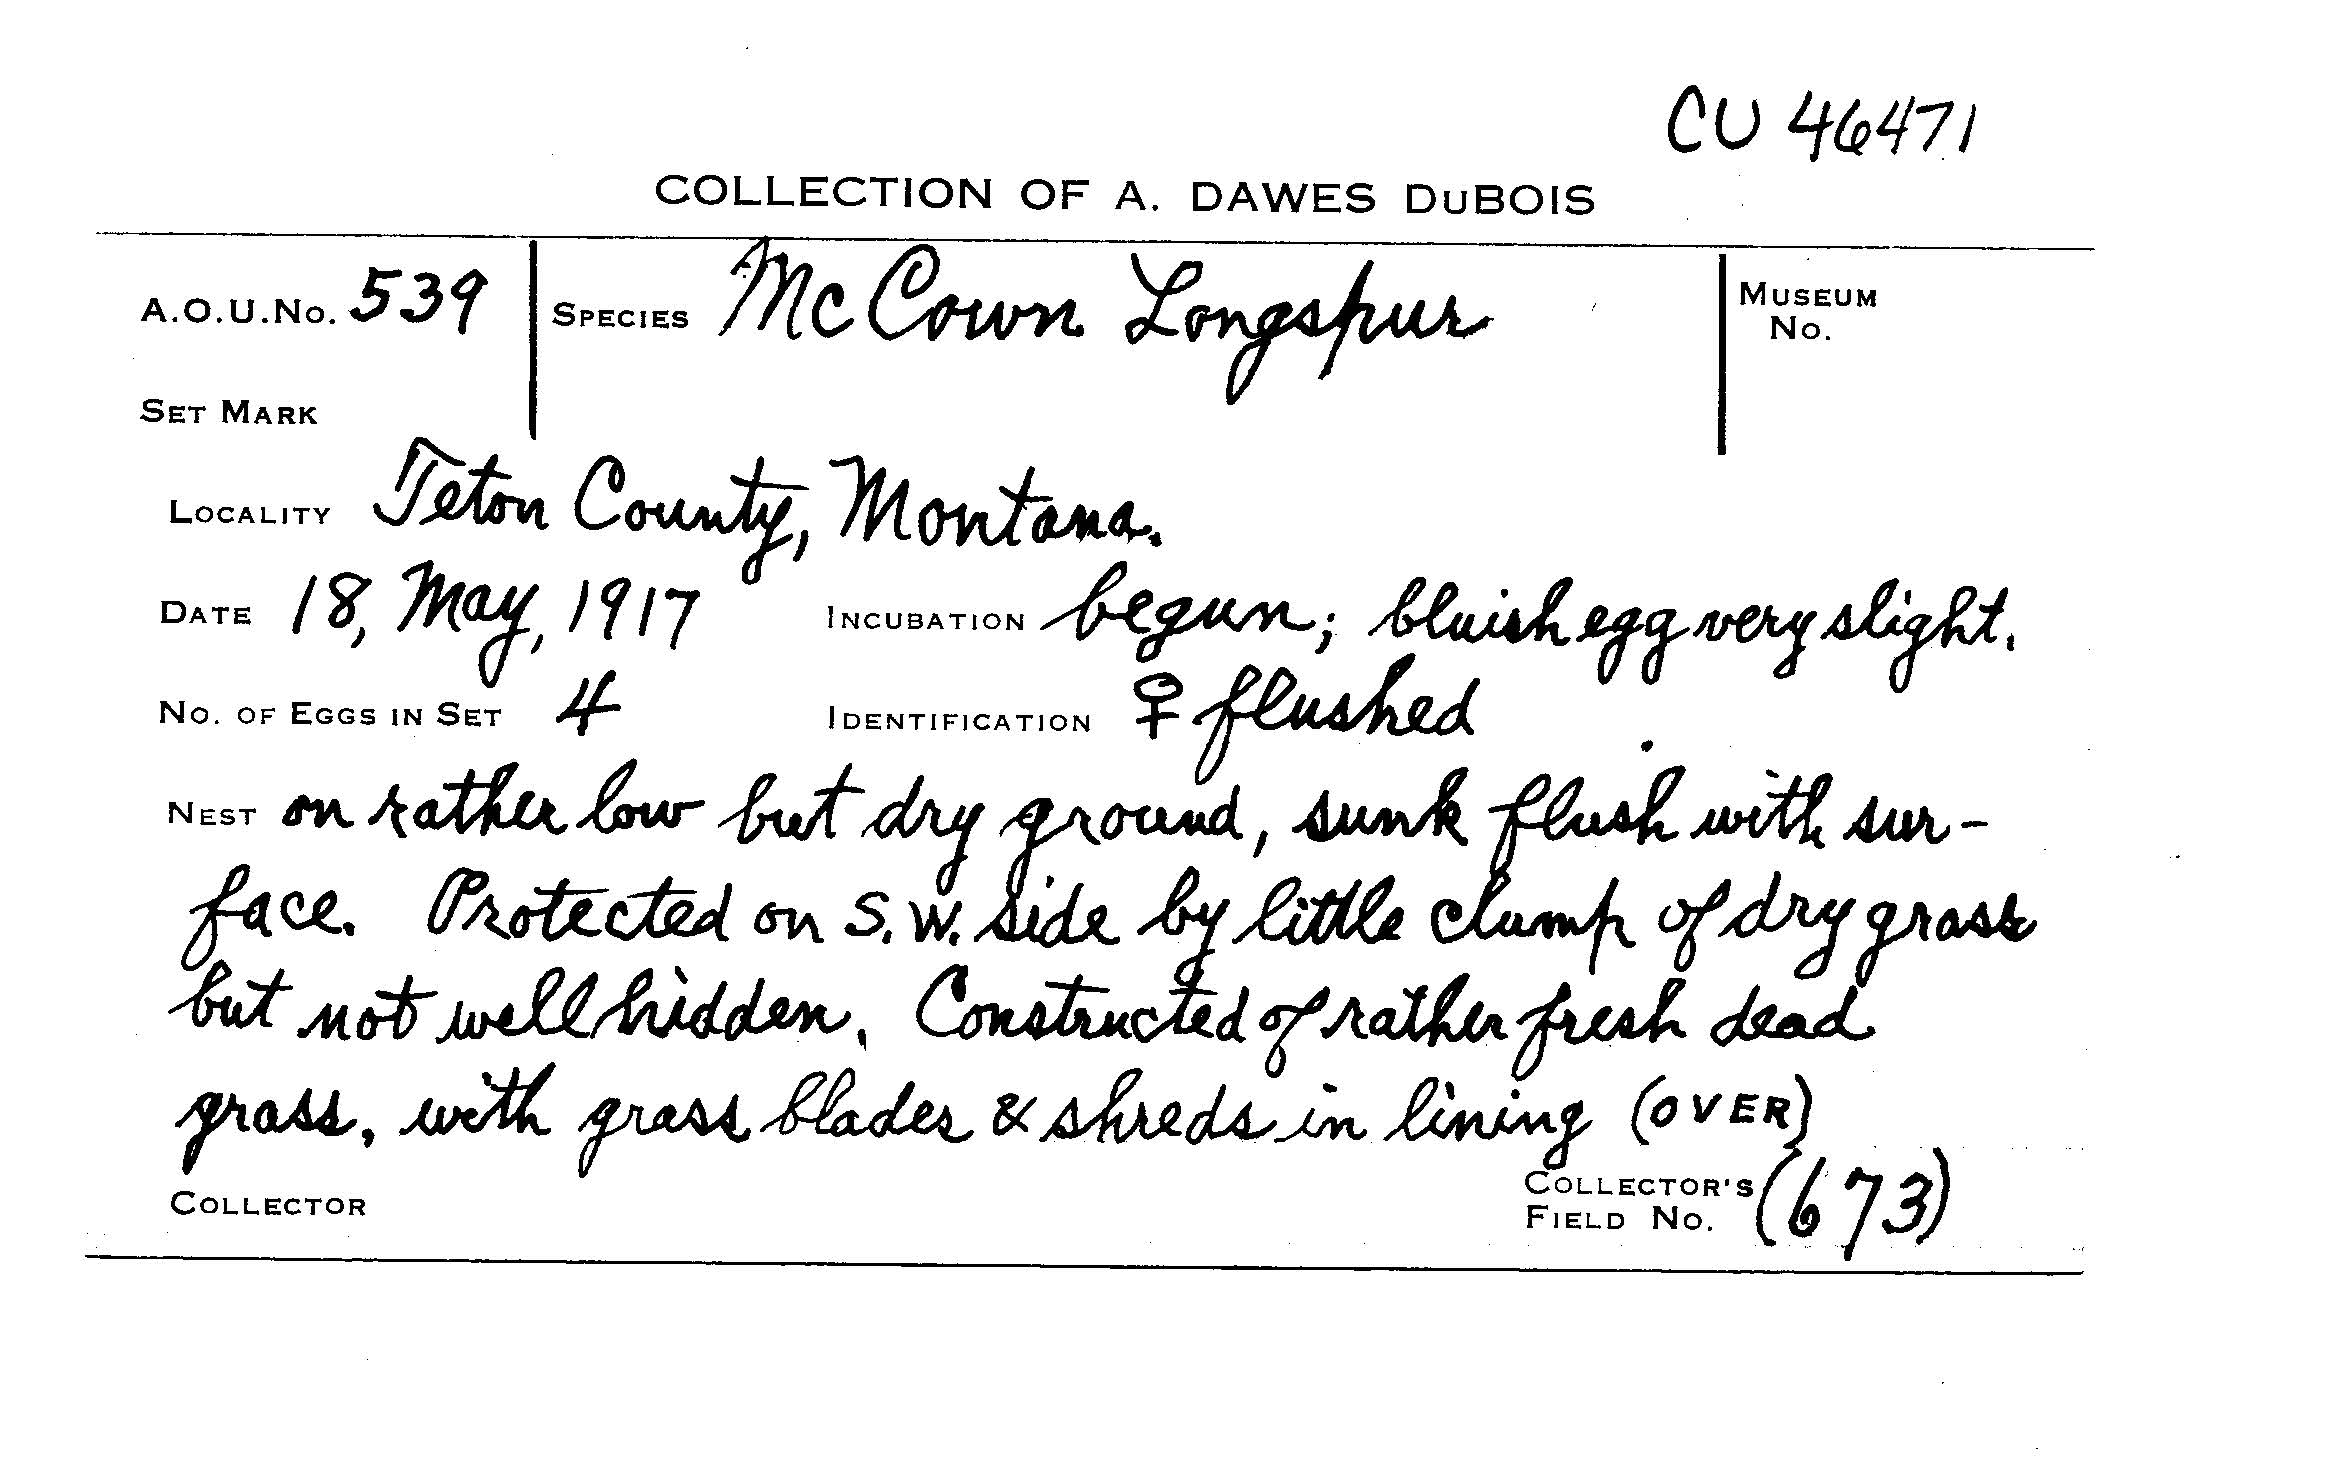 CU 46471
COLLECTION OF A. DAWES DuBOIS
A.O.U.No. 539 SPECIES McCown Longspur MUSEUM No.
SET MARK
LOCALITY Teton County, Montana.
DATE 18, May, 1917 INCUBATION begun; bluish egg very slight.
No. OF EGGS IN SET 4 IDENTIFICATION ♀ flushed
NEST on rather low but dry ground, sunk flush with sur-
face. Protected on S.W. side by little clump of dry grass
but not well hidden. Constructed of rather fresh dead
grass, with grass blades & shreds in lining (OVER)
COLLECTOR COLLECTOR'S FIELD No. (673)